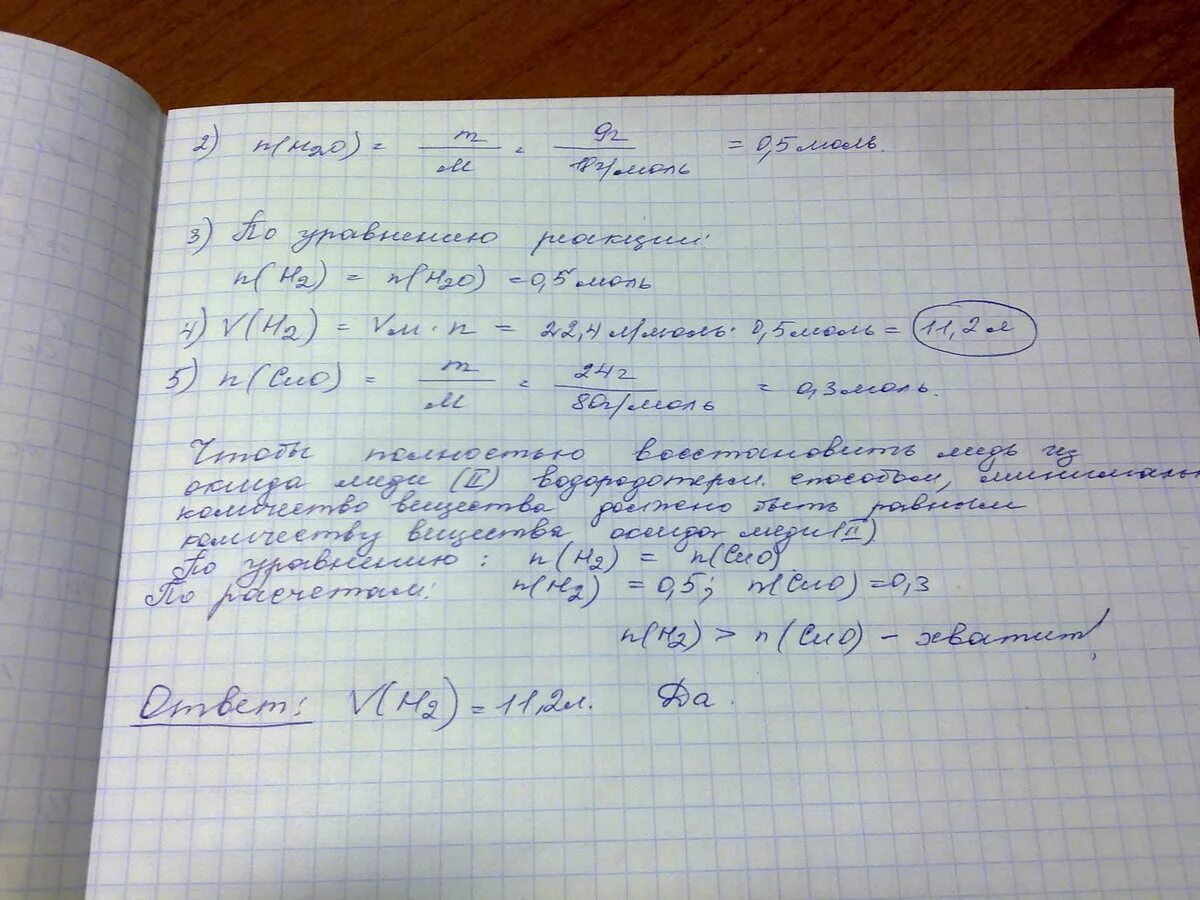 2) n(H2O) = m/M = 9г/18г/моль = 0,5 моль.
3) По уравнению реакции:
n(H2) = n(H2O) = 0,5 моль
4) V(H2) = Vм · n = 22,4 л/моль · 0,5 моль = 11,2 л
5) n(CuO) = m/M = 24г/80г/моль = 0,3 моль.
Чтобы полностью восстановить медь из
оксида меди (II) водородотерм. способом, минимальн
количество вещества должно быть равным
количеству вещества оксида меди (II)
По уравнению: n(H2) = n(CuO)
По расчетам: n(H2) = 0,5; n(CuO) = 0,3
n(H2) > n(CuO) – хватит!
Ответ: V(H2) = 11,2л. Да.